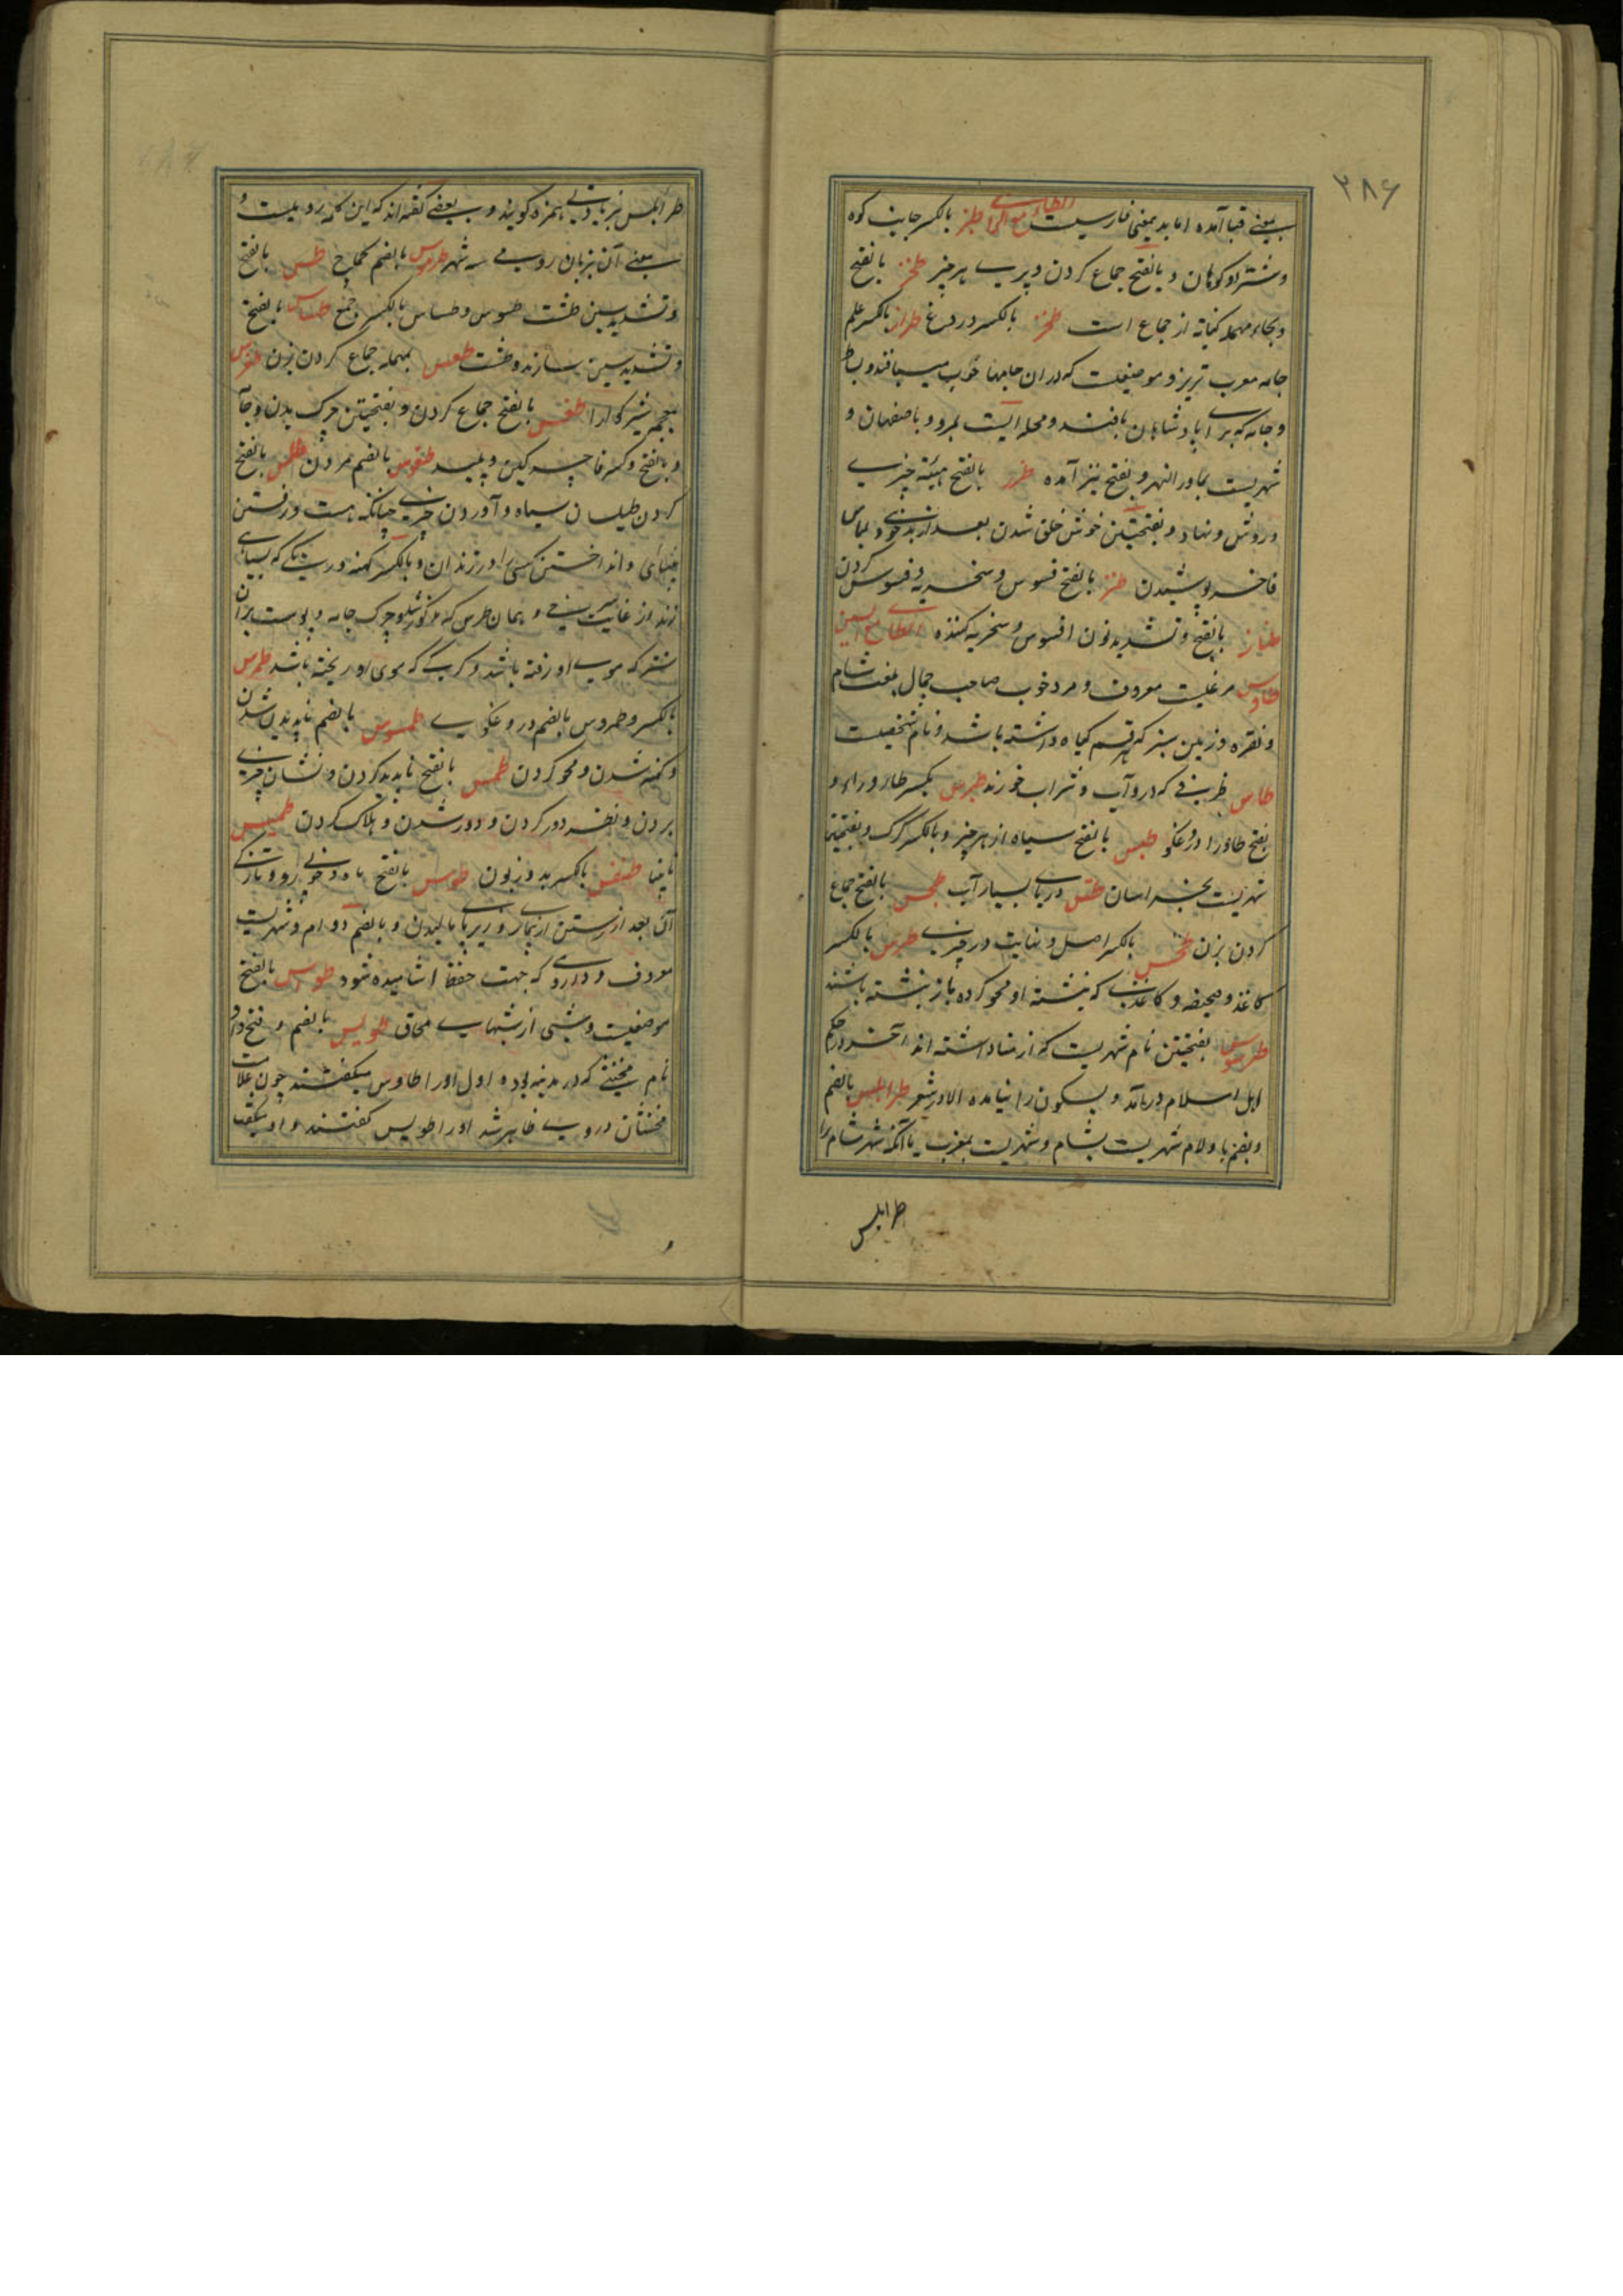 ۳۸۶
بمعنی قبا آمده اما بدیمعنی فارسیست الطاء مع الزا طبز بالکسر جانب کوه
وشتر دو کوهان و بالفتح جماع کردن و پری هر چیز طحز بالفتح
وبحاء مهمله کنایه از جماع است بالکسر دروغ طراز بالکسر علم
جامه معرب تریز و موضعیست که دران جامها خوب میبافند و
وجامه که برای پادشاهان بافند و محله ایست بمرو و باصفهان و
شهریست بماورالنهر و بفتح نیز آمده طرز بالفتح هیئة چیزی
وروش و نهاد و بفتحتین خوش خلق شدن بعد از بدخوی و لباس
فاخر پوشیدن طنز بالفتح فسوس و سخریه و فسوس کردن
طناز بالفتح و تشدید نون افسوس و سخریه کننده الطاء مع السین
طاوس مرغیست معروف و مرد خوب صاحب جمال بلغت شام
ونقره و زمین سبز که هر قسم گیاه داشته باشد و نام شخصیست
طاس ظرفی که درو آب و شراب خورند طبرس بکسر طا و را و
بفتح طا و را دروغگو طبس بالفتح سیاه از هر چیز و بالکسر گرگ و بفتحتین
شهریست بخراسان دریای بسیار آب طحس بالفتح جماع
کردن بزن طخس بالکسر اصل و نهایت در چیزی طرس بالکسر
کاغذ و صحیفه و کاغذی که نبشته او محو کرده باز نبشته باشند
طرسوس بفتحتین نام شهریست که ارمنا داشته اند آخر در حکم
اهل اسلام درآمد و بسکون را نیامده الا در شعر طرابلس بالضم
وبضم با و لام شهریست بشام و شهریست بمغرب یا آنکه شهر شام را
طرابلس
طرابلس بزیادتی همزه گویند و بعضی گفته اند که این کلمه رومیست و
معنی آن بزبان رومی سه شهر طرموس بالضم کماج طس بالفتح
وتشدید سین طشت طسوس و طساس بالکسر جمع طساس بالفتح
وتشدید سین سازنده طشت طعس بمهمله جماع کردن بزن
طفس بالفتح جماع کردن و بفتحتین چرک بدن و جامه
و بالفتح و کسر فا چرکین و پلید طفوس بالضم مردن طلس بالفتح
کردن طیلسان سیاه و آوردن چیزی چنانکه هست و رفتن
بینائی و انداختن کسی را در زندان و بالکسر کهنه و ریشی که بسیاهی
زند از غایت و همان طرس که مذکور شد و چرک جامه و پوست ران
شتر که موی او رفته باشد و گرگی که موی او ریخته باشد طمرس
بالکسر و طمروس بالضم دروغگوی طموس بالضم ناپدید شدن
وکهنه شدن و محو کردن طمس بالفتح ناپدید کردن و نشان چیزی
بردن و نظر دور کردن و دور شدن و هلاک کردن طمیس
نابینا طنفس بالکسر بد و زبون طوس بالفتح ماه و خوبی رو و تازگی
آن بعد از رستن از بیماری و زیر پا مالیدن و بالضم دوام و شهریست
معروف و داروی که جهت حفظ آشامیده شود طواس بالفتح
موضعیست و شبی از شبهای محاق طویس بالضم و فتح واو
نام مخنثی که در مدینه بوده اول او را طاوس میگفتند چون علامت
مخنثان در وی ظاهر شد او را طویس گفتند و او میگفت